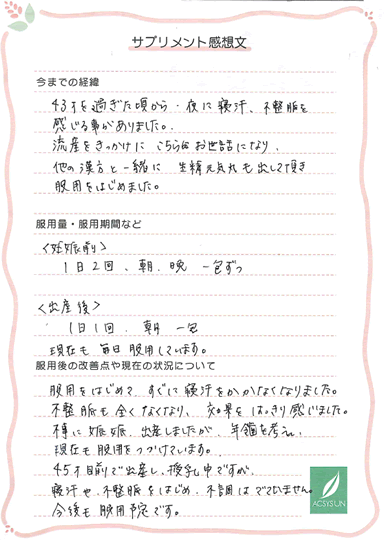 サプリメント感想文
今までの経緯
43才を過ぎた頃から・夜に寝汗、不整脈を
感じる事がありました。
流産をきっかけに こちらにお世話になり、
他の漢方と一緒に 生精元気丸も出して頂き
服用をはじめました。
服用量・服用期間など
<妊娠前>
1日2回、朝、晩 一包ずつ
<出産後>
1日1回、朝 一包
現在も毎日服用しています。
服用後の改善点や現在の状況について
服用をはじめて すぐに寝汗をかかなくなりました。
不整脈も全くなくなり、効果をはっきり感じました。
に妊娠、出産しましたが、年齢を考え、
現在も服用をつづけています。
45才目前で出産し、授乳中ですが、
寝汗や、不整脈をはじめ、不調はでていません。
今後も服用予定です。
ACSYS LIN